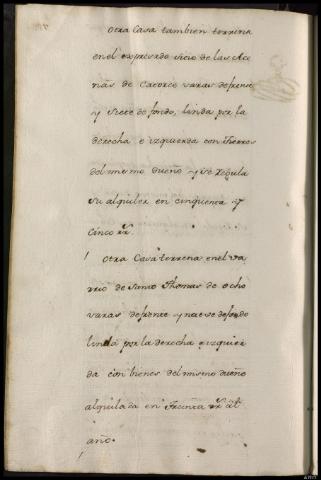 Otra Casa tambien terrena
en el expresado sitio de las Ace
ñas de Catorce varas de frente
y siete de fondo, linda por la
derecha e izquierda con tierras
del mismo dueño y se regula
su alquiler en cinquenta y
Cinco rr.
Otra Casa terrena en el va
rrio de Santo Thomas de ocho
varas de frente y nueve de fondo
linda por la derecha e izquier
da con bienes del mismo dueño
alquilada en treinta rr. al
año.